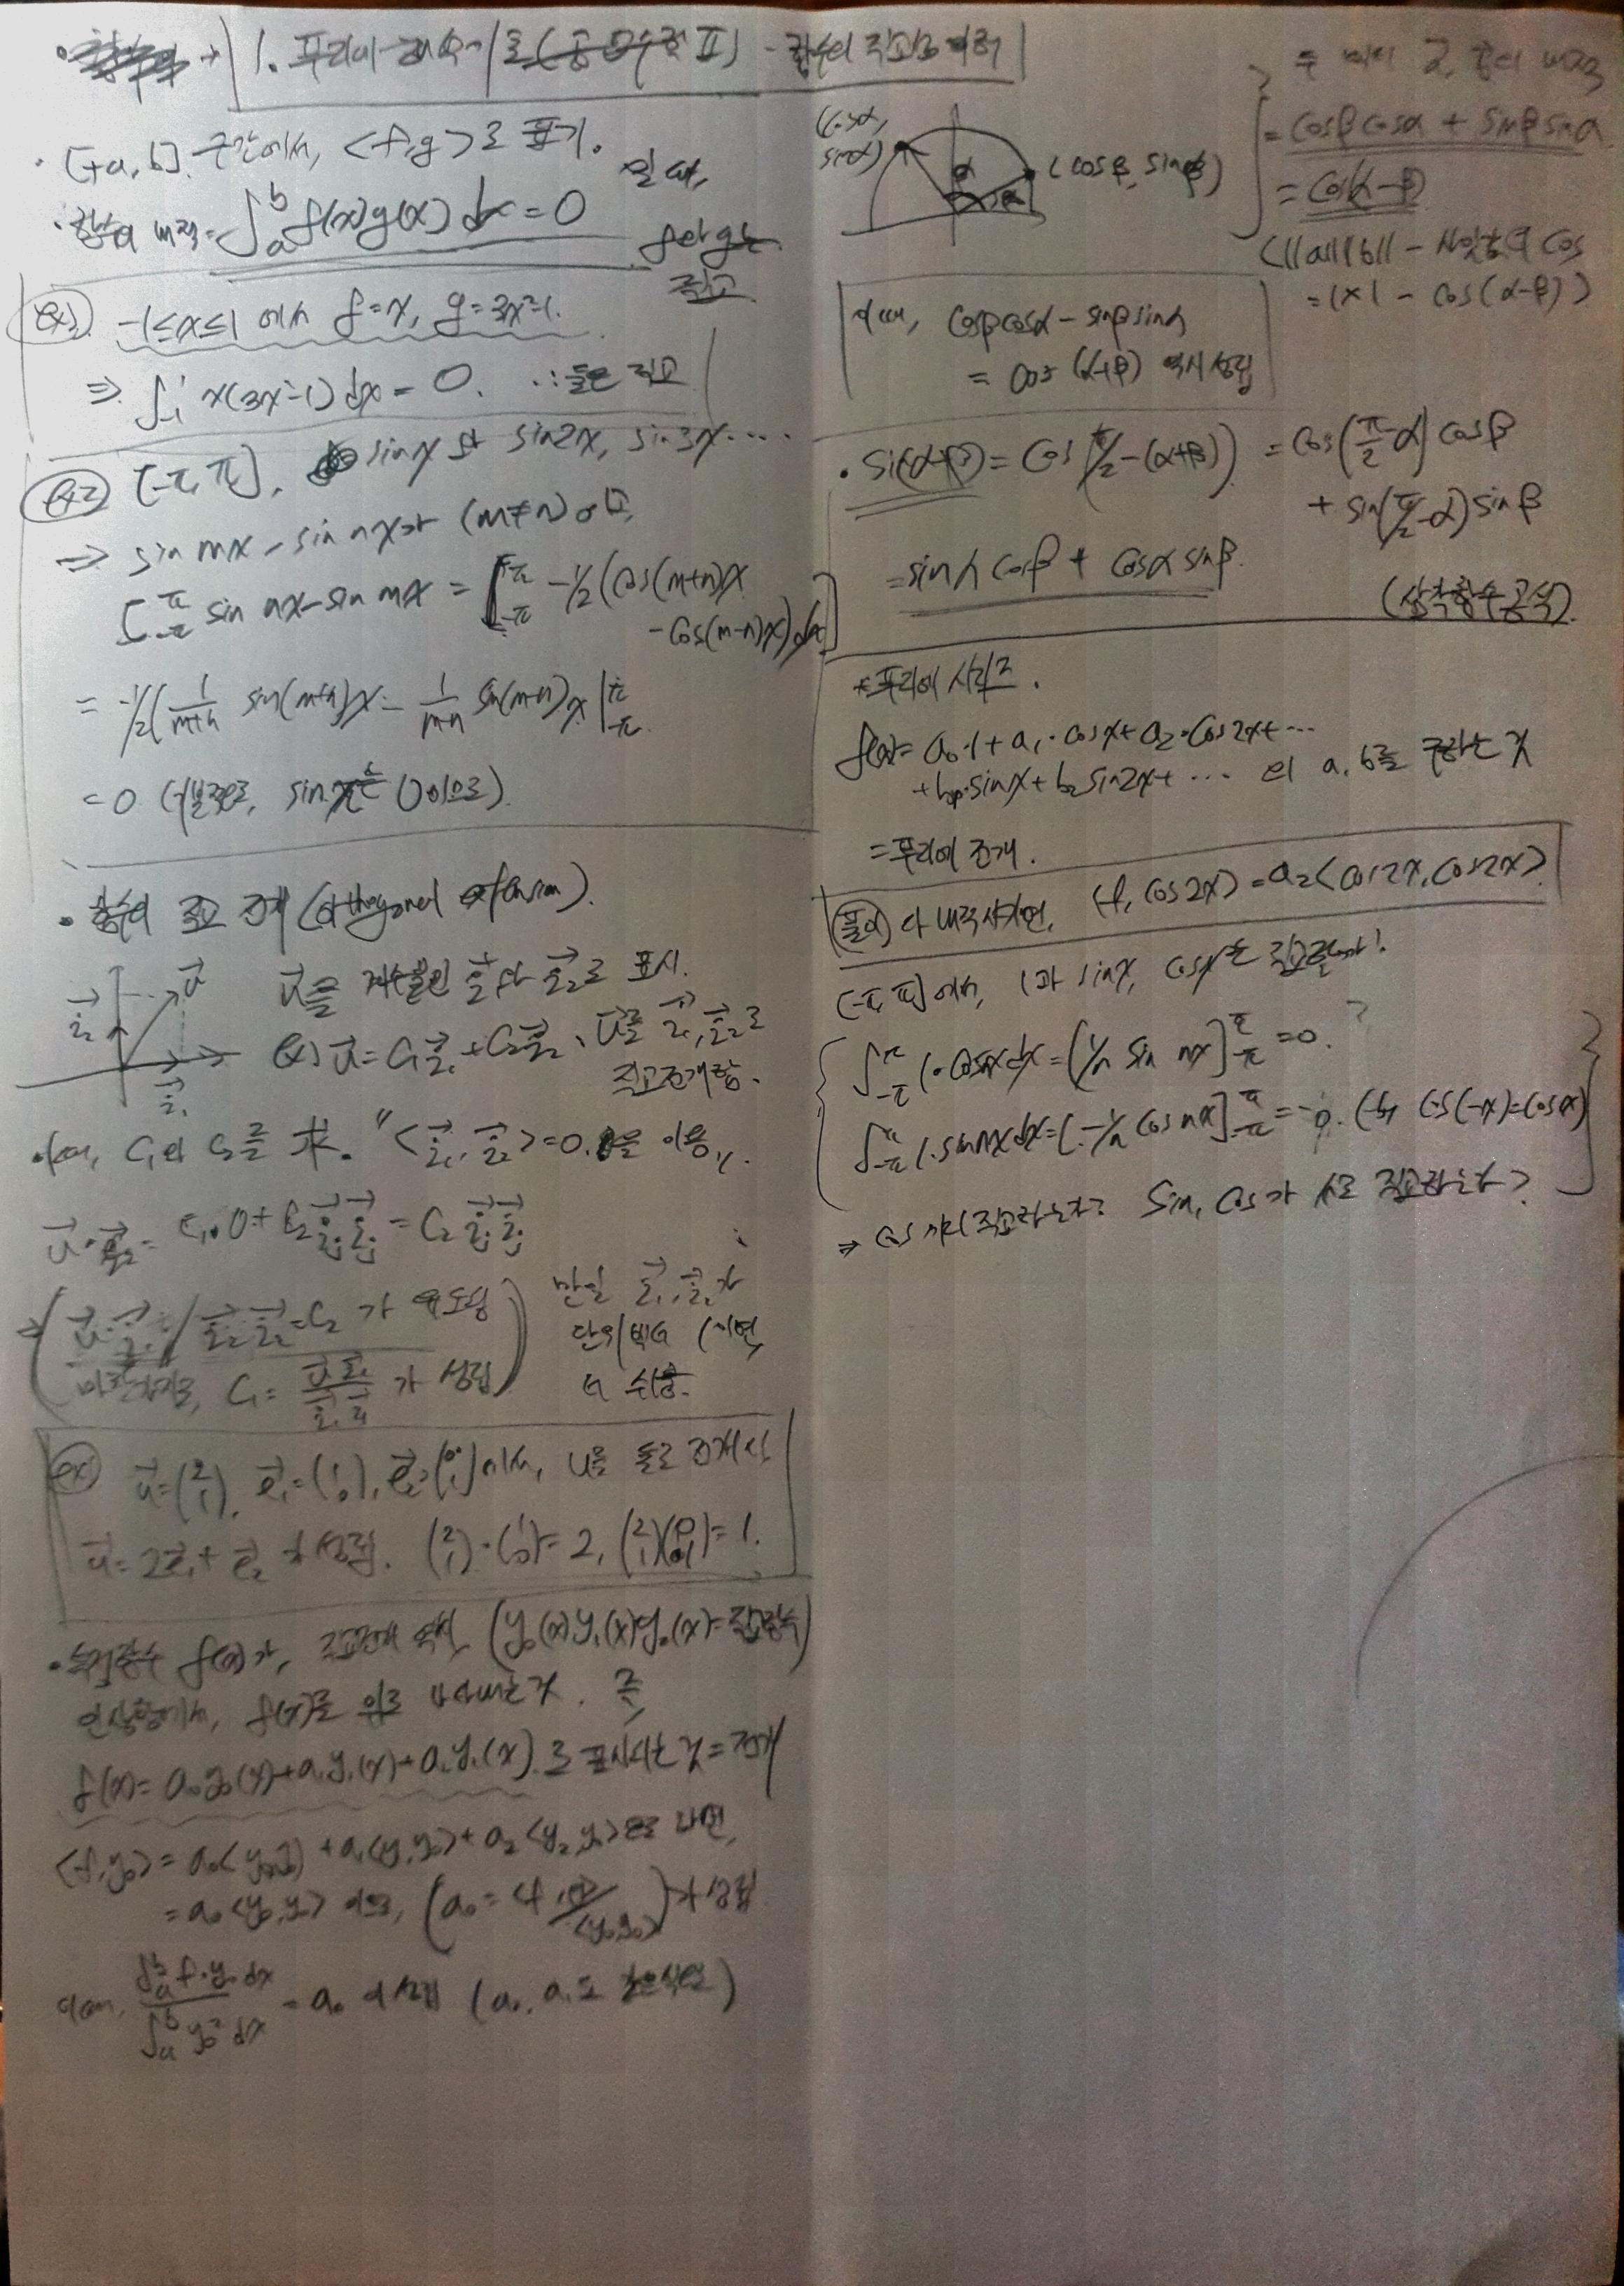 1. 푸리에 해석 기초 (공업수학 II) - 함수의 직교와 전개
· [a, b] 구간에서, <f, g>로 표기.
· 함수의 내적 = ∫_a^b f(x)g(x) dx = 0 일 때, f와 g는 직교
ex1) -1≤x≤1 에서 f=x, g=3x²-1.
⇒ ∫_-1^1 x(3x²-1) dx = 0. ∴ 둘은 직교
ex2) [-π, π], sinx 와 sin2x, sin3x ....
⇒ sin mx - sin nx가 (m≠n)
∫_-π^π sin nx - sin mx = ∫_-π^π -1/2 (cos(m+n)x
- cos(m-n)x) dx
= -1/2 ( 1/(m+n) sin(m+n)x - 1/(m-n) sin(m-n)x |_-π^π
= 0
· 함수의 직교 전개 (orthogonal expansion).
u
i₂
i₁
u를 i₁과 i₂로 표시.
ex) u = C₁i₁ + C₂i₂, u를 i₁, i₂로
직교전개함.
이때, C₁과 C₂를 求. "<i₁, i₂> = 0.을 이용"
= C₁·0 + C₂ i₂ i₂ = C₂ i₂ i₂
⇒ ( u·i₂ / i₂ i₂ = C₂ 가 유도됨
마찬가지로, C₁ = u i₁ / i₁ i₁ 가 성립 )
만일 i₁, i₂가
단위벡터 이면,
더 쉬움.
ex) u=(2 1), e₁=(1 0), e₂=(0 1)에서, u를 둘로 전개시
u = 2e₁ + e₂ 가 성립. (2 1)·(1 0) = 2, (2 1)(0 1) = 1.
f(x)가, 직교전개 역시, (y₀(x) y₁(x) y₂(x) = 직교함수)
인 상황에서, f(x)를 위로 나타내는 것. 즉,
f(x) = a₀y₀(x) + a₁y₁(x) + a₂y₂(x).로 표시하는 것 = 전개
<f, y₀> = a₀<y₀, y₀> + a₁<y₁, y₀> + a₂<y₂, y₀>
= a₀<y₀, y₀> 이므로, (a₀ = <f, y₀> / <y₀, y₀>)가 성립
이때, ∫_a^b f·y₀ dx / ∫_a^b y₀² dx = a₀ 이 성립
(cosα, sinα)
(cosβ, sinβ)
= cosβcosα + sinβsinα
= cos(α-β)
(||a|| ||b|| - 사잇각의 cos
= 1×1 - cos(α-β))
이때, cosβcosα - sinβsinα
= cos(α+β) 역시 성립
· sin(α+β) = cos(π/2 - (α+β)) = cos(π/2 - α) cosβ
+ sin(π/2 - α) sinβ
= sinα cosβ + cosα sinβ.
(삼각함수 공식).
* 푸리에 시리즈.
f(x) = a₀·1 + a₁·cosx + a₂·cos2x + ...
+ b₁·sinx + b₂sin2x + ... 의 a, b를 구하는 것
= 푸리에 전개.
(풀이) 다 내적시키면, <f, cos2x> = a₂<cos2x, cos2x>
[-π, π]에서, 1과 sinx, cosx는 직교할까?
∫_-π^π 1·cosnx dx = [1/n sin nx]_-π^π = 0.
∫_-π^π 1·sinnx dx = [-1/n cos nx]_-π^π = 0. (cos(-x) = cosx)
⇒ cos끼리 직교하는가? Sin, cos가 서로 직교하는가?